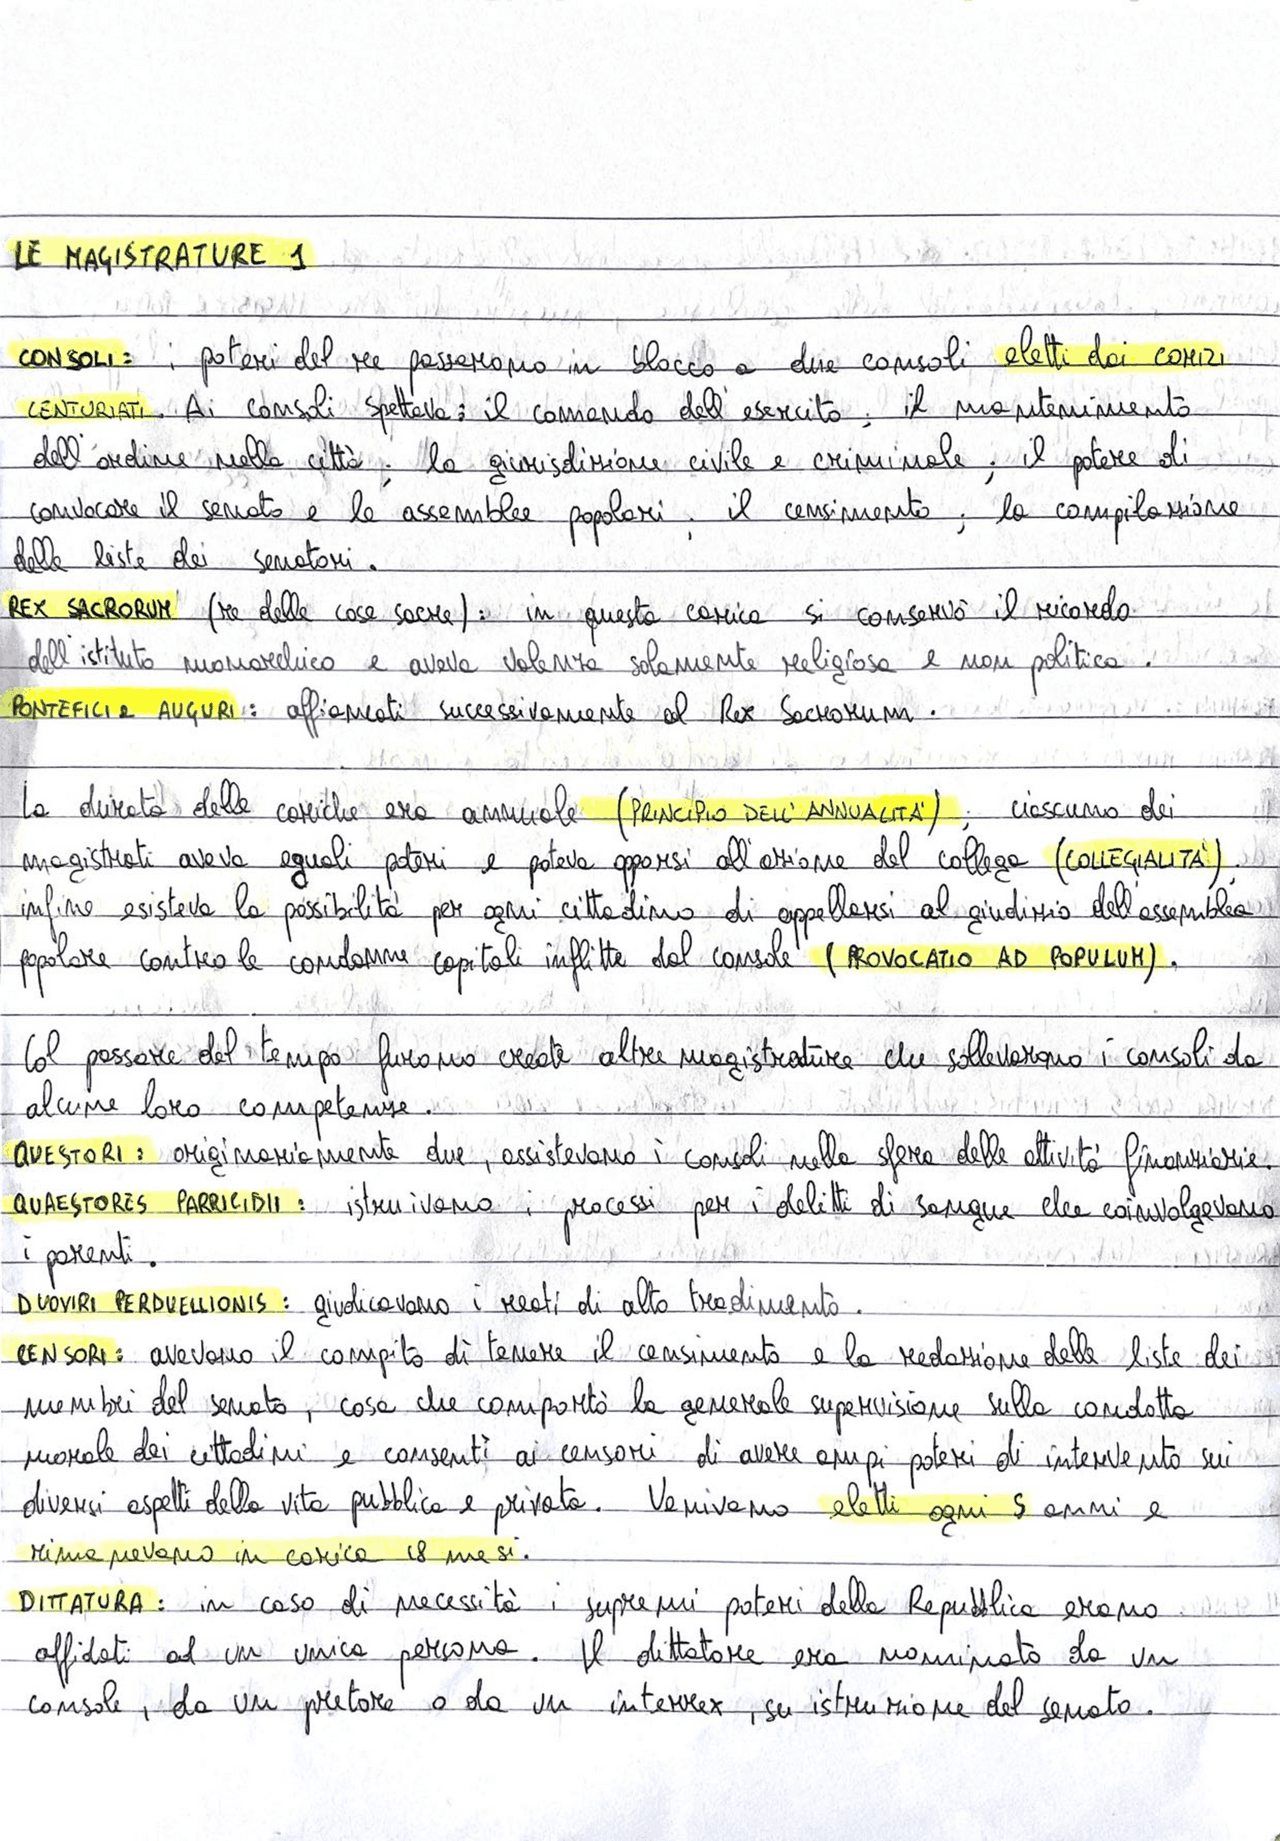 LE MAGISTRATURE 1
CONSOLI: i poteri del re passarono in blocco a due consoli eletti dai COMIZI
CENTURIATI. Ai consoli spettava: il comando dell'esercito; il mantenimento
dell'ordine nella città; la giurisdizione civile e criminale; il potere di
convocare il senato e le assemblee popolari; il censimento; la compilazione
delle liste dei senatori.
REX SACRORUM (re delle cose sacre): in questa carica si conservò il ricordo
dell'istituto monarchico e aveva valenza solamente religiosa e non politica.
PONTEFICI e AUGURI: affiancati successivamente al Rex Sacrorum.
La durata delle cariche era annuale (PRINCIPIO DELL'ANNUALITÀ); ciascuno dei
magistrati aveva eguali poteri e poteva opporsi all'azione del collega (COLLEGIALITÀ);
infine esisteva la possibilità per ogni cittadino di appellarsi al giudizio dell'assemblea
popolare contro le condanne capitali inflitte dal console (PROVOCATIO AD POPULUM).
Col passare del tempo furono create altre magistrature che sollevarono i consoli da
alcune loro competenze.
QUESTORI: originariamente due, assistevano i consoli nella sfera delle attività finanziarie.
QUAESTORES PARRICIDII: istruivano i processi per i delitti di sangue che coinvolgevano
i parenti.
DUOVIRI PERDUELLIONIS: giudicavano i reati di alto tradimento.
CENSORI: avevano il compito di tenere il censimento e la redazione delle liste dei
membri del senato, cosa che comportò la generale supervisione sulla condotta
morale dei cittadini e consentì ai censori di avere ampi poteri di intervento sui
diversi aspetti della vita pubblica e privata. Venivano eletti ogni 5 anni e
rimanevano in carica 18 mesi.
DITTATURA: in caso di necessità i supremi poteri della Repubblica erano
affidati ad un unica persona. Il dittatore era nominato da un
console, da un pretore o da un interrex, su istruzione del senato.